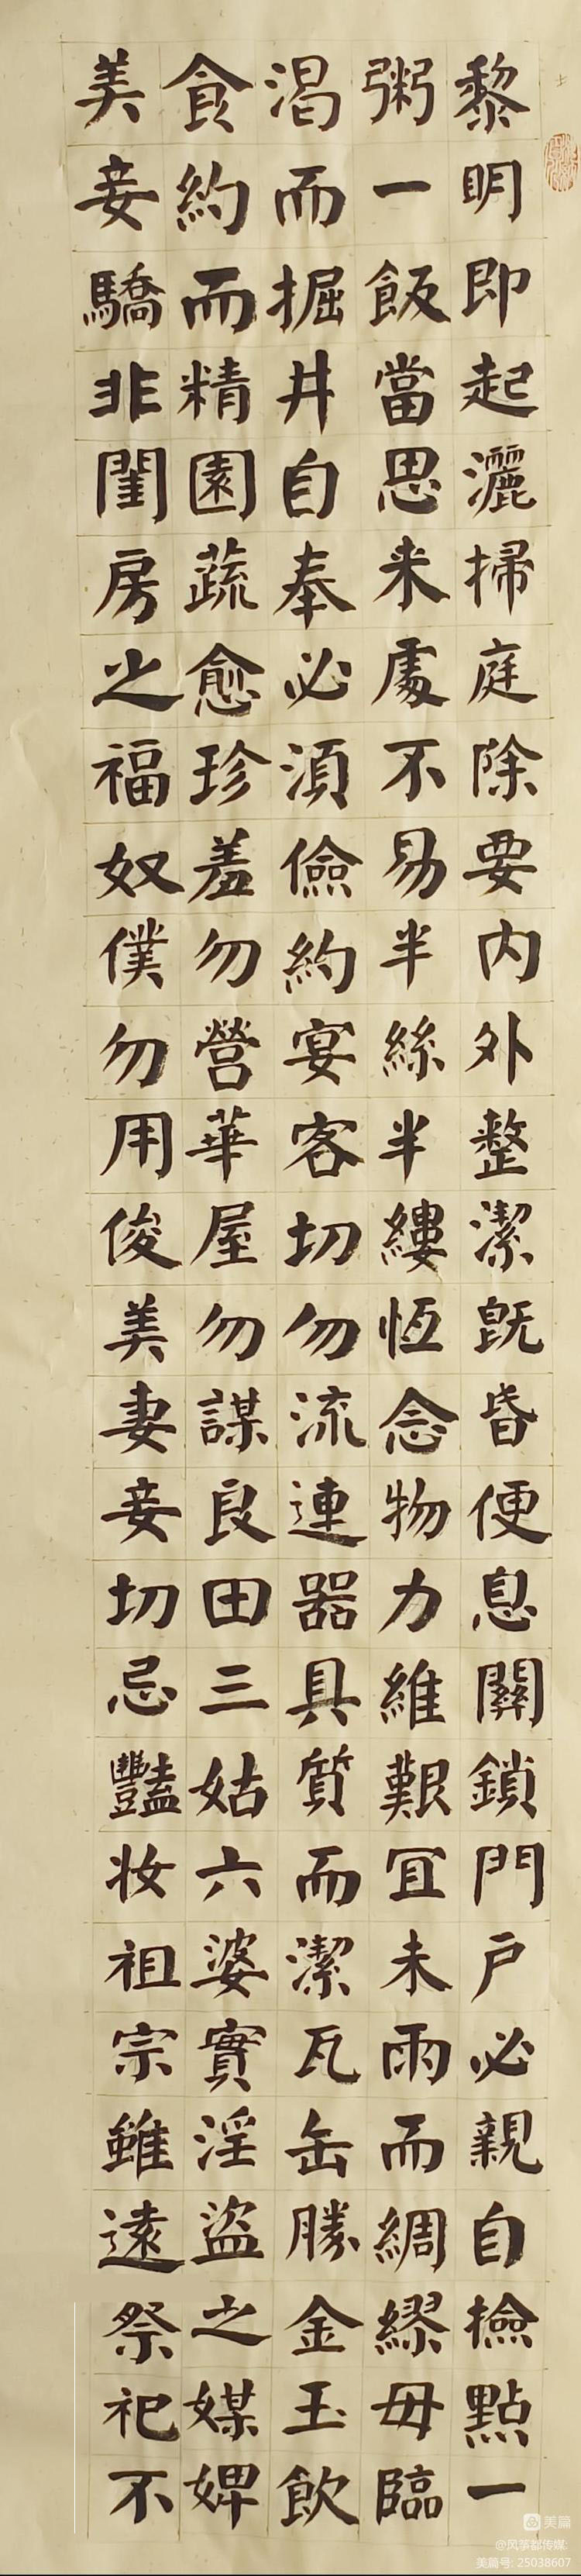 黎明即起灑掃庭除要内外整潔既昏便息關鎖門戶必親自撿點一
粥一飯當思来處不易半絲半縷恆念物力維艱宜未雨而綢繆毋臨
渴而掘井自奉必須儉約宴客切勿流連器具質而潔瓦缶勝金玉飲
食約而精園蔬愈珍羞勿營華屋勿謀良田三姑六婆實淫盜之媒婢
美妾驕非閨房之福奴僕勿用俊美妻妾切忌豔妝祖宗雖遠祭祀不
美篇
@风筝都传媒
美篇号: 25038607